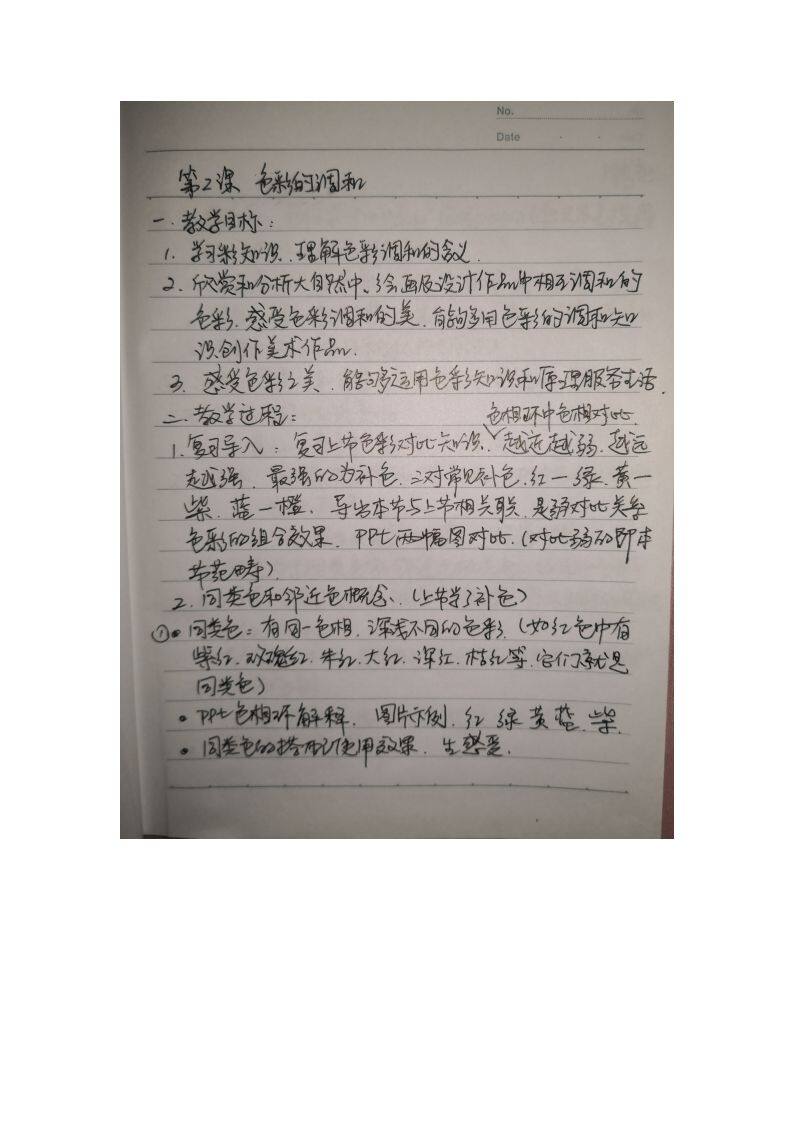 No.
Date
第2课 色彩的调和
一.教学目标：
1. 学习彩知识、理解色彩调和的含义.
2. 欣赏和分析大自然中、绘画及设计作品中相互调和的
色彩.感受色彩调和的美.能够多用色彩的调和知
识创作美术作品.
3. 感受色彩之美.能够运用色彩知识和原理服务生活.
二.教学过程：
色相环中色相对比.
1.复习导入：复习上节色彩对比知识.越近越弱.越远
越强.最强的为补色.三对常见补色.红一绿.黄一
紫.蓝一橙. 导出本节与上节相关联.是弱对比关系
色彩的组合效果. PPt两幅图对比.(对比弱的即本
节范畴).
2. 同类色和邻近色概念.(上节学了补色)
①• 同类色：有同一色相.深浅不同的色彩.(如红色中有
紫红.玫瑰红.朱红.大红.深红.桔红等.它们就是
同类色)
• PPt色相环解释. 图片示例.红 绿 黄 蓝.紫.
• 同类色的搭配使用效果. 生感受.